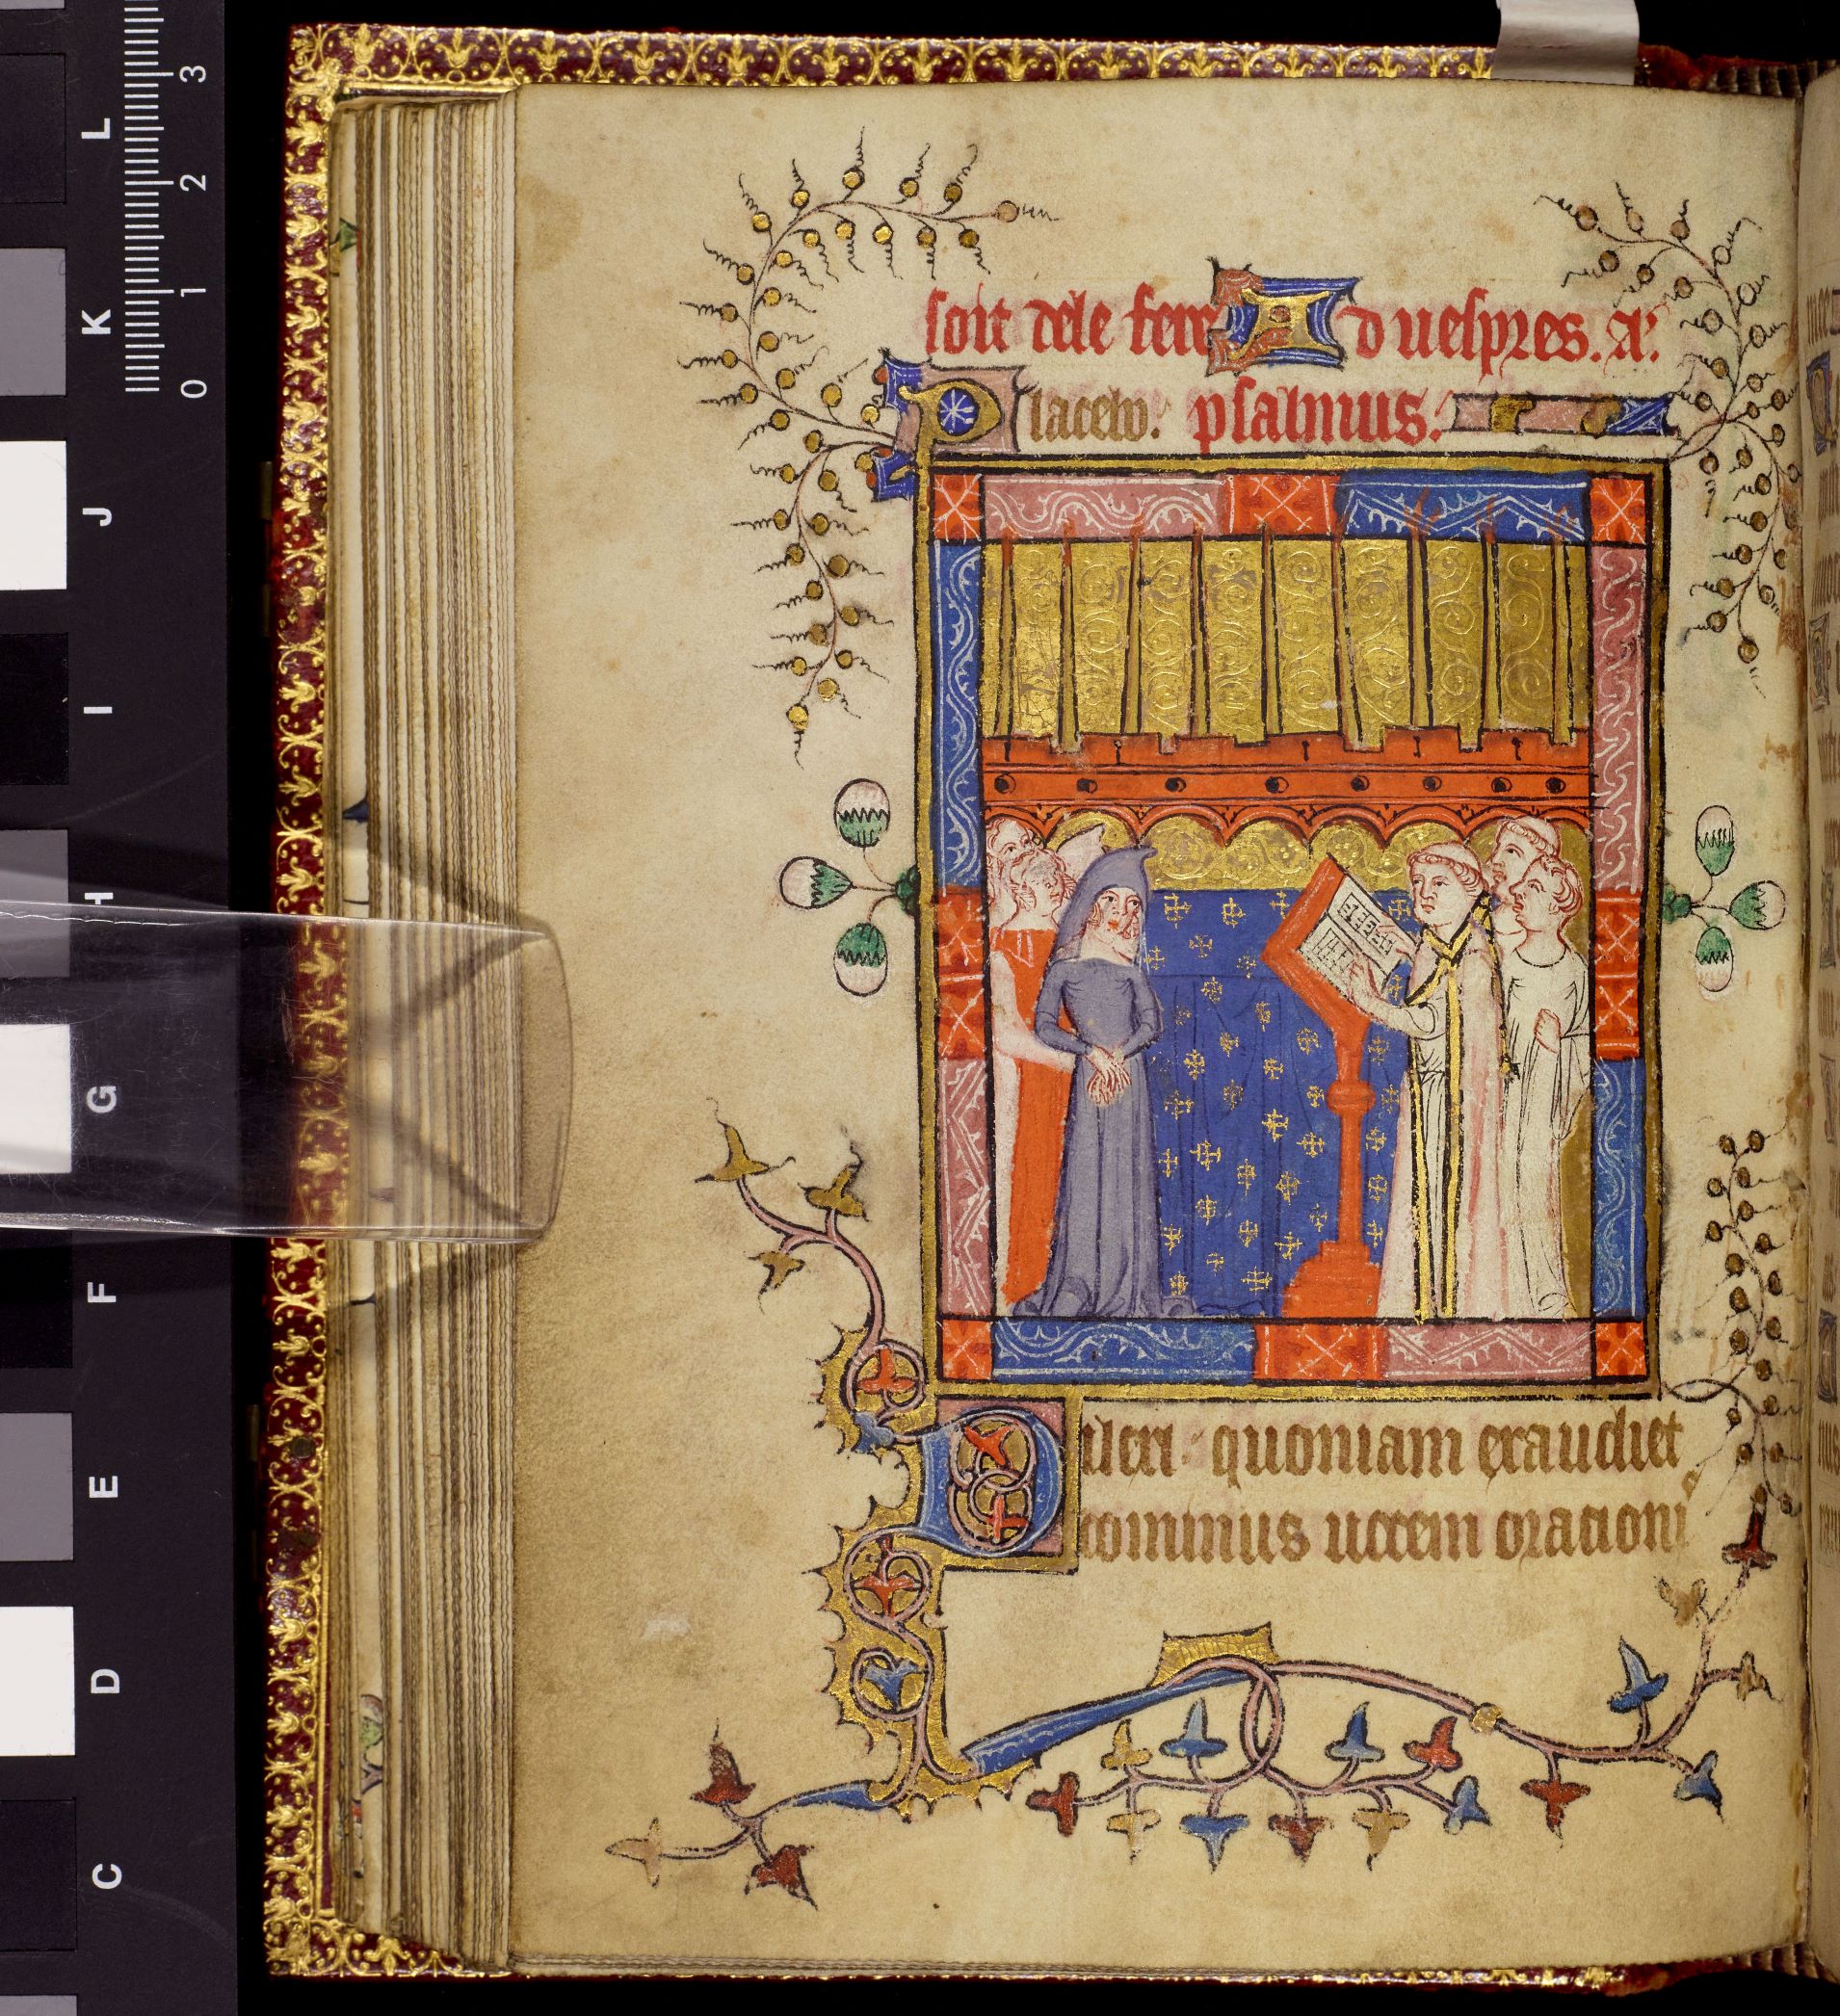 soit dele feit Ad uespres. A'.
Placebo. psalmus.
Dilexi quoniam exaudiet
dominus uocem orationi
L
K
J
I
H
G
F
E
D
C
3
2
1
0